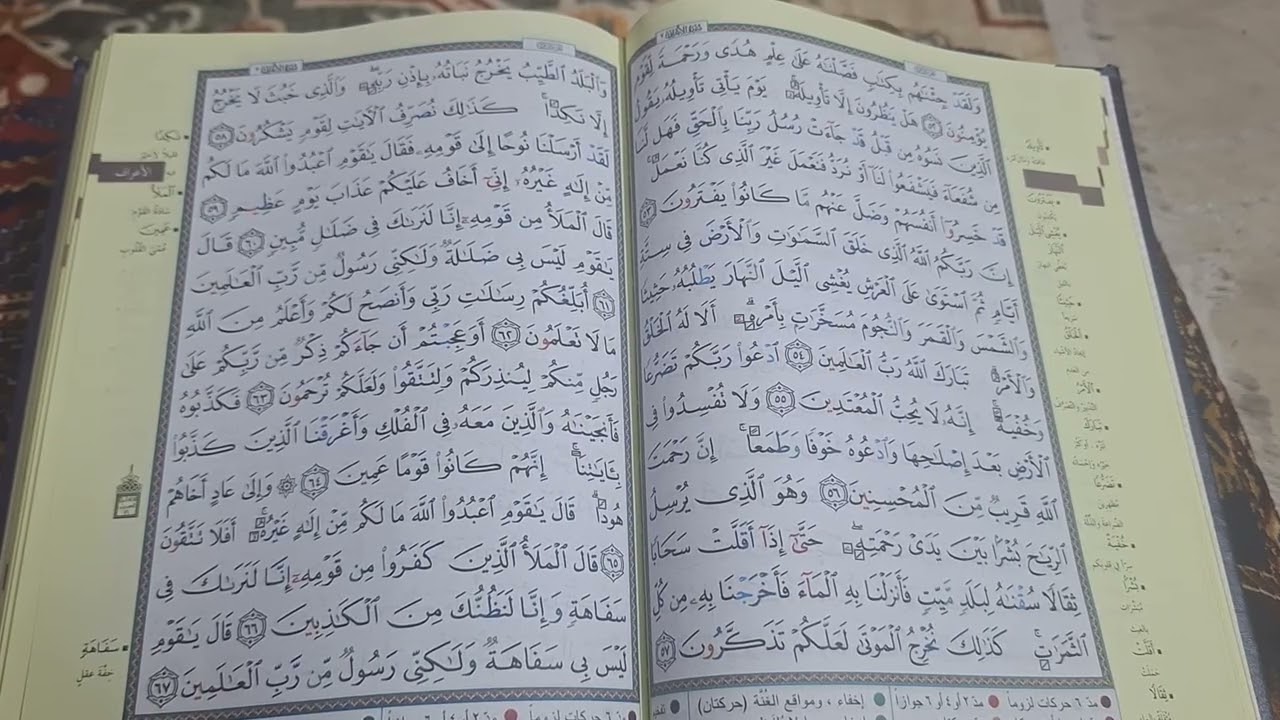 وَلَقَدْ جِئْنَٰهُم بِكِتَٰبٍ فَصَّلْنَٰهُ عَلَىٰ عِلْمٍ هُدًى وَرَحْمَةً لِّقَوْمٍ
يُؤْمِنُونَ ٥٢ هَلْ يَنظُرُونَ إِلَّا تَأْوِيلَهُۥ يَوْمَ يَأْتِى تَأْوِيلُهُۥ يَقُولُ
ٱلَّذِينَ نَسُوهُ مِن قَبْلُ قَدْ جَآءَتْ رُسُلُ رَبِّنَا بِٱلْحَقِّ فَهَل لَّنَا
مِن شُفَعَآءَ فَيَشْفَعُوا۟ لَنَآ أَوْ نُرَدُّ فَنَعْمَلَ غَيْرَ ٱلَّذِى كُنَّا نَعْمَلُ
قَدْ خَسِرُوٓا۟ أَنفُسَهُمْ وَضَلَّ عَنْهُم مَّا كَانُوا۟ يَفْتَرُونَ ٥٣
إِنَّ رَبَّكُمُ ٱللَّهُ ٱلَّذِى خَلَقَ ٱلسَّمَٰوَٰتِ وَٱلْأَرْضَ فِى سِتَّةِ
أَيَّامٍ ثُمَّ ٱسْتَوَىٰ عَلَى ٱلْعَرْشِ يُغْشِى ٱلَّيْلَ ٱلنَّهَارَ يَطْلُبُهُۥ حَثِيثًا
وَٱلشَّمْسَ وَٱلْقَمَرَ وَٱلنُّجُومَ مُسَخَّرَٰتٍۭ بِأَمْرِهِۦٓ أَلَا لَهُ ٱلْخَلْقُ
وَٱلْأَمْرُ تَبَارَكَ ٱللَّهُ رَبُّ ٱلْعَٰلَمِينَ ٥٤ ٱدْعُوا۟ رَبَّكُمْ تَضَرُّعًا
وَخُفْيَةً إِنَّهُۥ لَا يُحِبُّ ٱلْمُعْتَدِينَ ٥٥ وَلَا تُفْسِدُوا۟ فِى
ٱلْأَرْضِ بَعْدَ إِصْلَٰحِهَا وَٱدْعُوهُ خَوْفًا وَطَمَعًا إِنَّ رَحْمَتَ
ٱللَّهِ قَرِيبٌ مِّنَ ٱلْمُحْسِنِينَ ٥٦ وَهُوَ ٱلَّذِى يُرْسِلُ
ٱلرِّيَٰحَ بُشْرًۢا بَيْنَ يَدَىْ رَحْمَتِهِۦ حَتَّىٰٓ إِذَآ أَقَلَّتْ سَحَابًا
ثِقَالًا سُقْنَٰهُ لِبَلَدٍ مَّيِّتٍ فَأَنزَلْنَا بِهِ ٱلْمَآءَ فَأَخْرَجْنَا بِهِۦ مِن كُلِّ
ٱلثَّمَرَٰتِ كَذَٰلِكَ نُخْرِجُ ٱلْمَوْتَىٰ لَعَلَّكُمْ تَذَكَّرُونَ ٥٧
تَأْوِيلَهُ
يَفْتَرُونَ
حَثِيثًا
ٱلْخَلْقُ
ٱلْأَمْرُ
تَبَارَكَ
تَضَرُّعًا
خُفْيَةً
بُشْرًا
مبشرات
أَقَلَّتْ
حملت
ثِقَالًا
مدّ ٦ حركات لزوماً
مدّ ٢ أو ٤ أو ٦ جوازاً
إخفاء، ومواقع الغُنَّة (حركتان)
وَٱلْبَلَدُ ٱلطَّيِّبُ يَخْرُجُ نَبَاتُهُۥ بِإِذْنِ رَبِّهِۦ وَٱلَّذِى خَبُثَ لَا يَخْرُجُ
إِلَّا نَكِدًا كَذَٰلِكَ نُصَرِّفُ ٱلْءَايَٰتِ لِقَوْمٍ يَشْكُرُونَ ٥٨
لَقَدْ أَرْسَلْنَا نُوحًا إِلَىٰ قَوْمِهِۦ فَقَالَ يَٰقَوْمِ ٱعْبُدُوا۟ ٱللَّهَ مَا لَكُم
مِّنْ إِلَٰهٍ غَيْرُهُۥٓ إِنِّىٓ أَخَافُ عَلَيْكُمْ عَذَابَ يَوْمٍ عَظِيمٍ ٥٩
قَالَ ٱلْمَلَأُ مِن قَوْمِهِۦٓ إِنَّا لَنَرَىٰكَ فِى ضَلَٰلٍ مُّبِينٍ ٦٠ قَالَ
يَٰقَوْمِ لَيْسَ بِى ضَلَٰلَةٌ وَلَٰكِنِّى رَسُولٌ مِّن رَّبِّ ٱلْعَٰلَمِينَ
٦١ أُبَلِّغُكُمْ رِسَٰلَٰتِ رَبِّى وَأَنصَحُ لَكُمْ وَأَعْلَمُ مِنَ ٱللَّهِ
مَا لَا تَعْلَمُونَ ٦٢ أَوَعَجِبْتُمْ أَن جَآءَكُمْ ذِكْرٌ مِّن رَّبِّكُمْ عَلَىٰ
رَجُلٍ مِّنكُمْ لِيُنذِرَكُمْ وَلِتَتَّقُوا۟ وَلَعَلَّكُمْ تُرْحَمُونَ ٦٣ فَكَذَّبُوهُ
فَأَنجَيْنَٰهُ وَٱلَّذِينَ مَعَهُۥ فِى ٱلْفُلْكِ وَأَغْرَقْنَا ٱلَّذِينَ كَذَّبُوا۟
بِـَٔايَٰتِنَآ إِنَّهُمْ كَانُوا۟ قَوْمًا عَمِينَ ٦٤ ۞ وَإِلَىٰ عَادٍ أَخَاهُمْ
هُودًا قَالَ يَٰقَوْمِ ٱعْبُدُوا۟ ٱللَّهَ مَا لَكُم مِّنْ إِلَٰهٍ غَيْرُهُۥٓ أَفَلَا تَتَّقُونَ
٦٥ قَالَ ٱلْمَلَأُ ٱلَّذِينَ كَفَرُوا۟ مِن قَوْمِهِۦٓ إِنَّا لَنَرَىٰكَ فِى
سَفَاهَةٍ وَإِنَّا لَنَظُنُّكَ مِنَ ٱلْكَٰذِبِينَ ٦٦ قَالَ يَٰقَوْمِ
لَيْسَ بِى سَفَاهَةٌ وَلَٰكِنِّى رَسُولٌ مِّن رَّبِّ ٱلْعَٰلَمِينَ ٦٧
نَكِدًا
الأعراف
ٱلْمَلَأُ
سادة القوم
عَمِينَ
عُمْيَ القلوب
سَفَاهَةٍ
خفّة عقل
مدّ ٦ حركات لزوماً